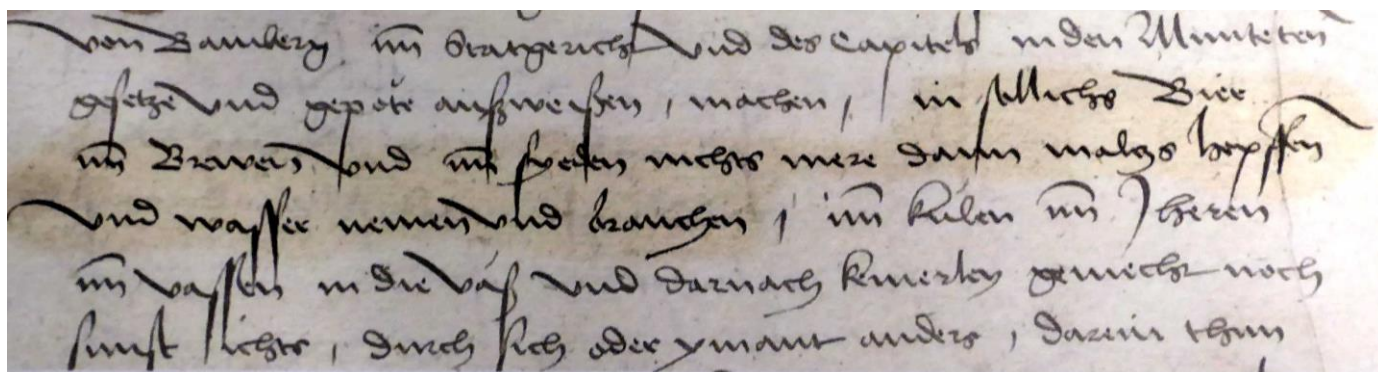 von Bamberg im Statgericht und des Capitels in den Munteten
gesetze und gepote außweisen, machen, in sollichs Bier
im Brewen und im syeden nichts mere dann maltz hopffen
und wasser nemen und brauchen, im külen im heren
im vassen in die vaß und darnach keinerley gemecht noch
sunst ichts, durch sich oder ymant anders, darein thun